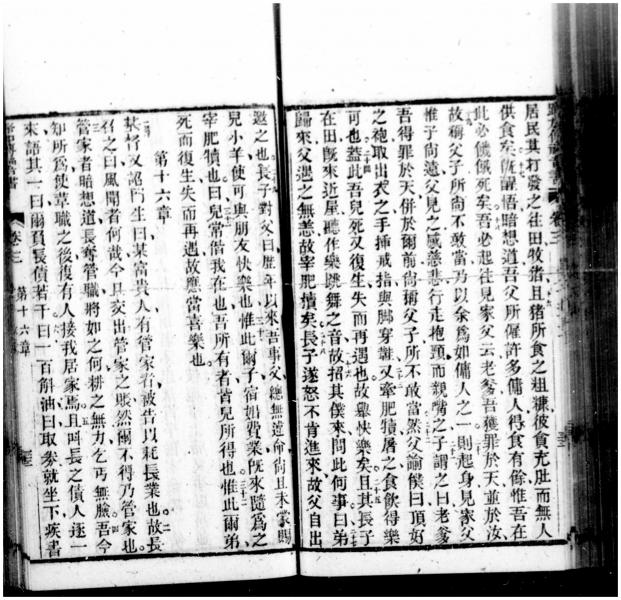 居民其打發之往田牧猪且猪所食之粗糠彼食充肚而無人
供食矣伍醒悟暗想道吾父所僱許多傭人得食有餘惟吾在
此必餓餓死矣吾必起往見家父云老爹吾獲罪於天並於汝
故稱父子所尚不敢當乃以余爲如傭人之一則起身見家父
惟子尚遠父見之感慈悲行走抱頸而親嘴之子謂之曰老爹
吾得罪於天併於爾前尚稱父子所不敢當然父諭僕曰頂好
之袍取出衣之手插戒指與脚穿鞋又牽肥犢屠之食飲得樂
可也蓋此吾兒死又復生失而再遇也故繼快樂矣且其長子
在田旣來近屋聽作樂跳舞之音故招其僕來問此何事曰弟
歸來父遇之無恙故宰肥犢矣長子遂怒不肯進來故父自出
邀之也長子對父曰歷年以來吾事父總無逆命尚且未蒙賜
兒小羊使可與朋友快樂也惟此爾子宿娼費業旣來隨爲之
宰肥犢也曰兒常偕我在也吾所有者皆兒所得也惟此爾弟
死而復生失而再遇故應當喜樂也
第十六章
基督又詔門生曰某富貴人有管家者被告以耗長業也故長
召之曰風聞者何哉今且交出管家之賬然爾不得乃管家也
管家者暗想道長奪管職將如之何耕之無力乞丐無臉吾今
知所爲使革職之後復有人接我居家焉且呌長之債人逐一
來語其一曰爾負長債若干曰一百斛油曰取券就坐下疾書
卷三
第十六章